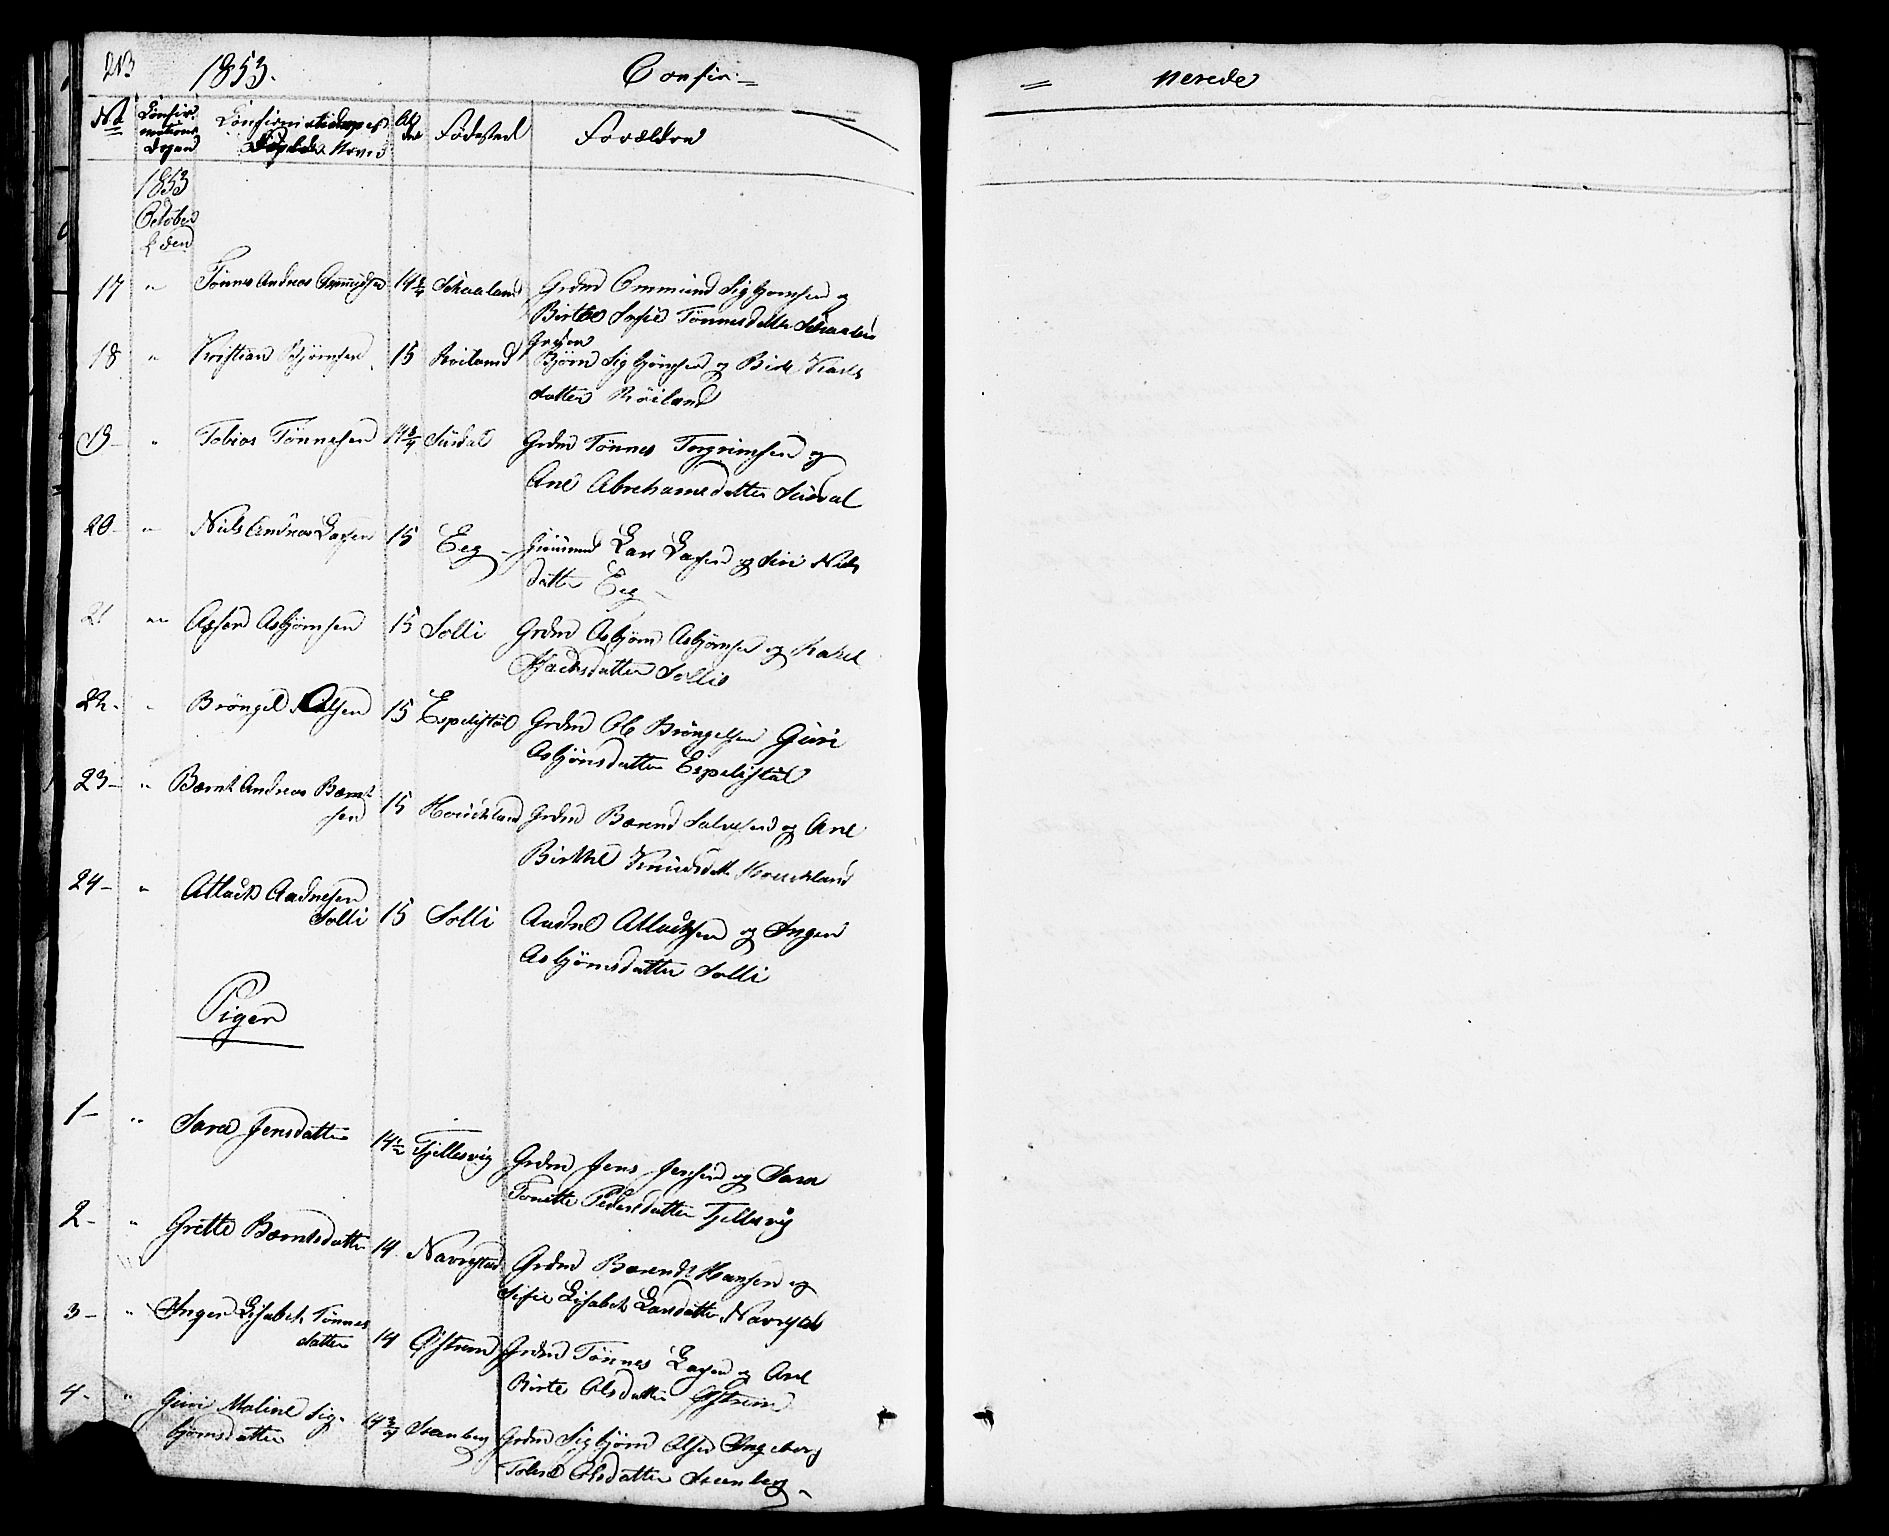 213 1853. Confir=
= merede
No Confirmations Dagen Confirmandernes Døbde Navne Alder Fødested Forældre
1853
October
2 den
17 " Tønnes Andreas Ommundsen 14 3/4 Skaaland Grdmd Ommund Sigbjørnsen og
Birthe Sofie Tønnesdatter Skaaland
18 " Kristian Bjørnsen 15 Röiland Bjørn Sigbjørnsen og Birte Karls
datter Röiland
19- " Tobias Tønnesen 14 3/4 Sudal Grdmd Tønnes Torgrimsen og
Ane Abrahamsdatter Suudal
20- " Niels Andreas Larsen 15 Eeg - Huusmd Lars Larsen og Siri Niels
datter Eeg -
21 " Asser Asbjørnsen 15 Solli Grdmd Asbjørn Asbjørnsen og
datter Solli
22- " Brøngel Olsen 15 Espelistøl Grdmd Ole Brøngelsen Guri
Asbjønsdatter Espelistøl
23- " Bærnt Andreas Bærnt
sen 15 Houckland Grdmd Bærend Salvesen og Ane
Birthe Knudsdatt Houckland
24- " Atlack Aadnesen
Solli 15 Solli Aadne Atlacksen og Inger
Asbjørnsdatter Solli
Piger
1- " Sara Jensdatter 14 1/2 Tjellesvig Grdmd Jens Jensen og Sara
Tonette Pedersdatter Tjellesvig
2- " Grette Bærntsdatter 14 Navrestad Grdmd Barendt Hansen og
Sofie Lisabet Larsdatter Navrestad
3- " Inger Lisabet Tønnes
datter 14 Østrem Grdmd Tønnes Larsen og Ane
Birte Olsdatter Østrem
4- " Guri Maline Sig-
bjørnsdatter 14 3/4 Steenberg Grdmd Sigbjørn Olsen Ingeborg
Tolene Olsdatter Steenberg -